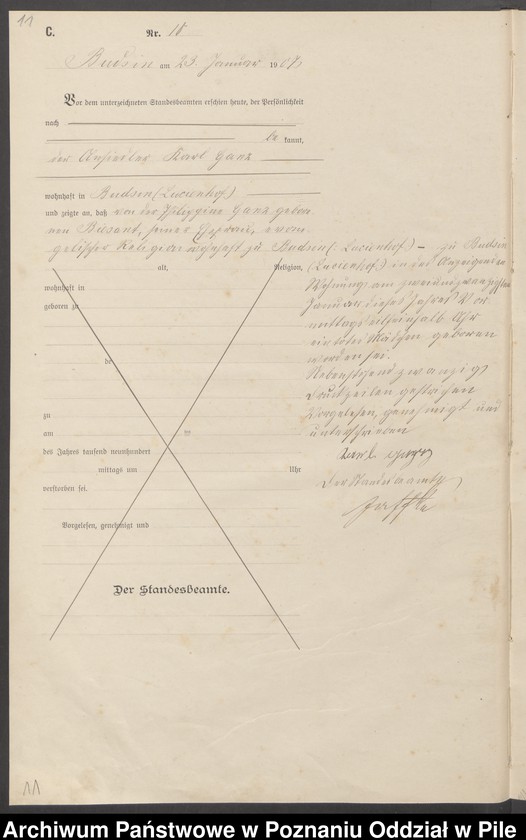 11
C. Nr. 10
Budsin am 23. Januar 1909
Vor dem unterzeichneten Standesbeamten erschien heute, der Persönlichkeit
nach
be kannt,
der Ansiedler Karl Ganz
wohnhaft in Budsin (Lucienhof)
und zeigte an, daß von der Philippine Ganz gebor
nen Bisant, seiner Ehefrau, evan
gelischer Religion wohnhaft zu Budsin (Lucienhof) – zu Budsin
alt, Religion,
wohnhaft in
geboren zu
de
zu
am ten
des Jahres tausend neunhundert
mittags um Uhr
verstorben sei.
Vorgelesen, genehmigt und
Der Standesbeamte.
(Lucienhof) in der Anzeigenden
Wohnung am zweiundzwanzigsten
Januar dieses Jahres Vor
mittags elfeinhalb Uhr
ein totes Mädchen geboren
worden sei.
Nebenstehend zwanzig
Druckzeilen gestrichen
Vorgelesen, genehmigt und
unterschrieben
Karl Ganz
Der Standesbeamte
11
Archiwum Państwowe w Poznaniu Oddział w Pile